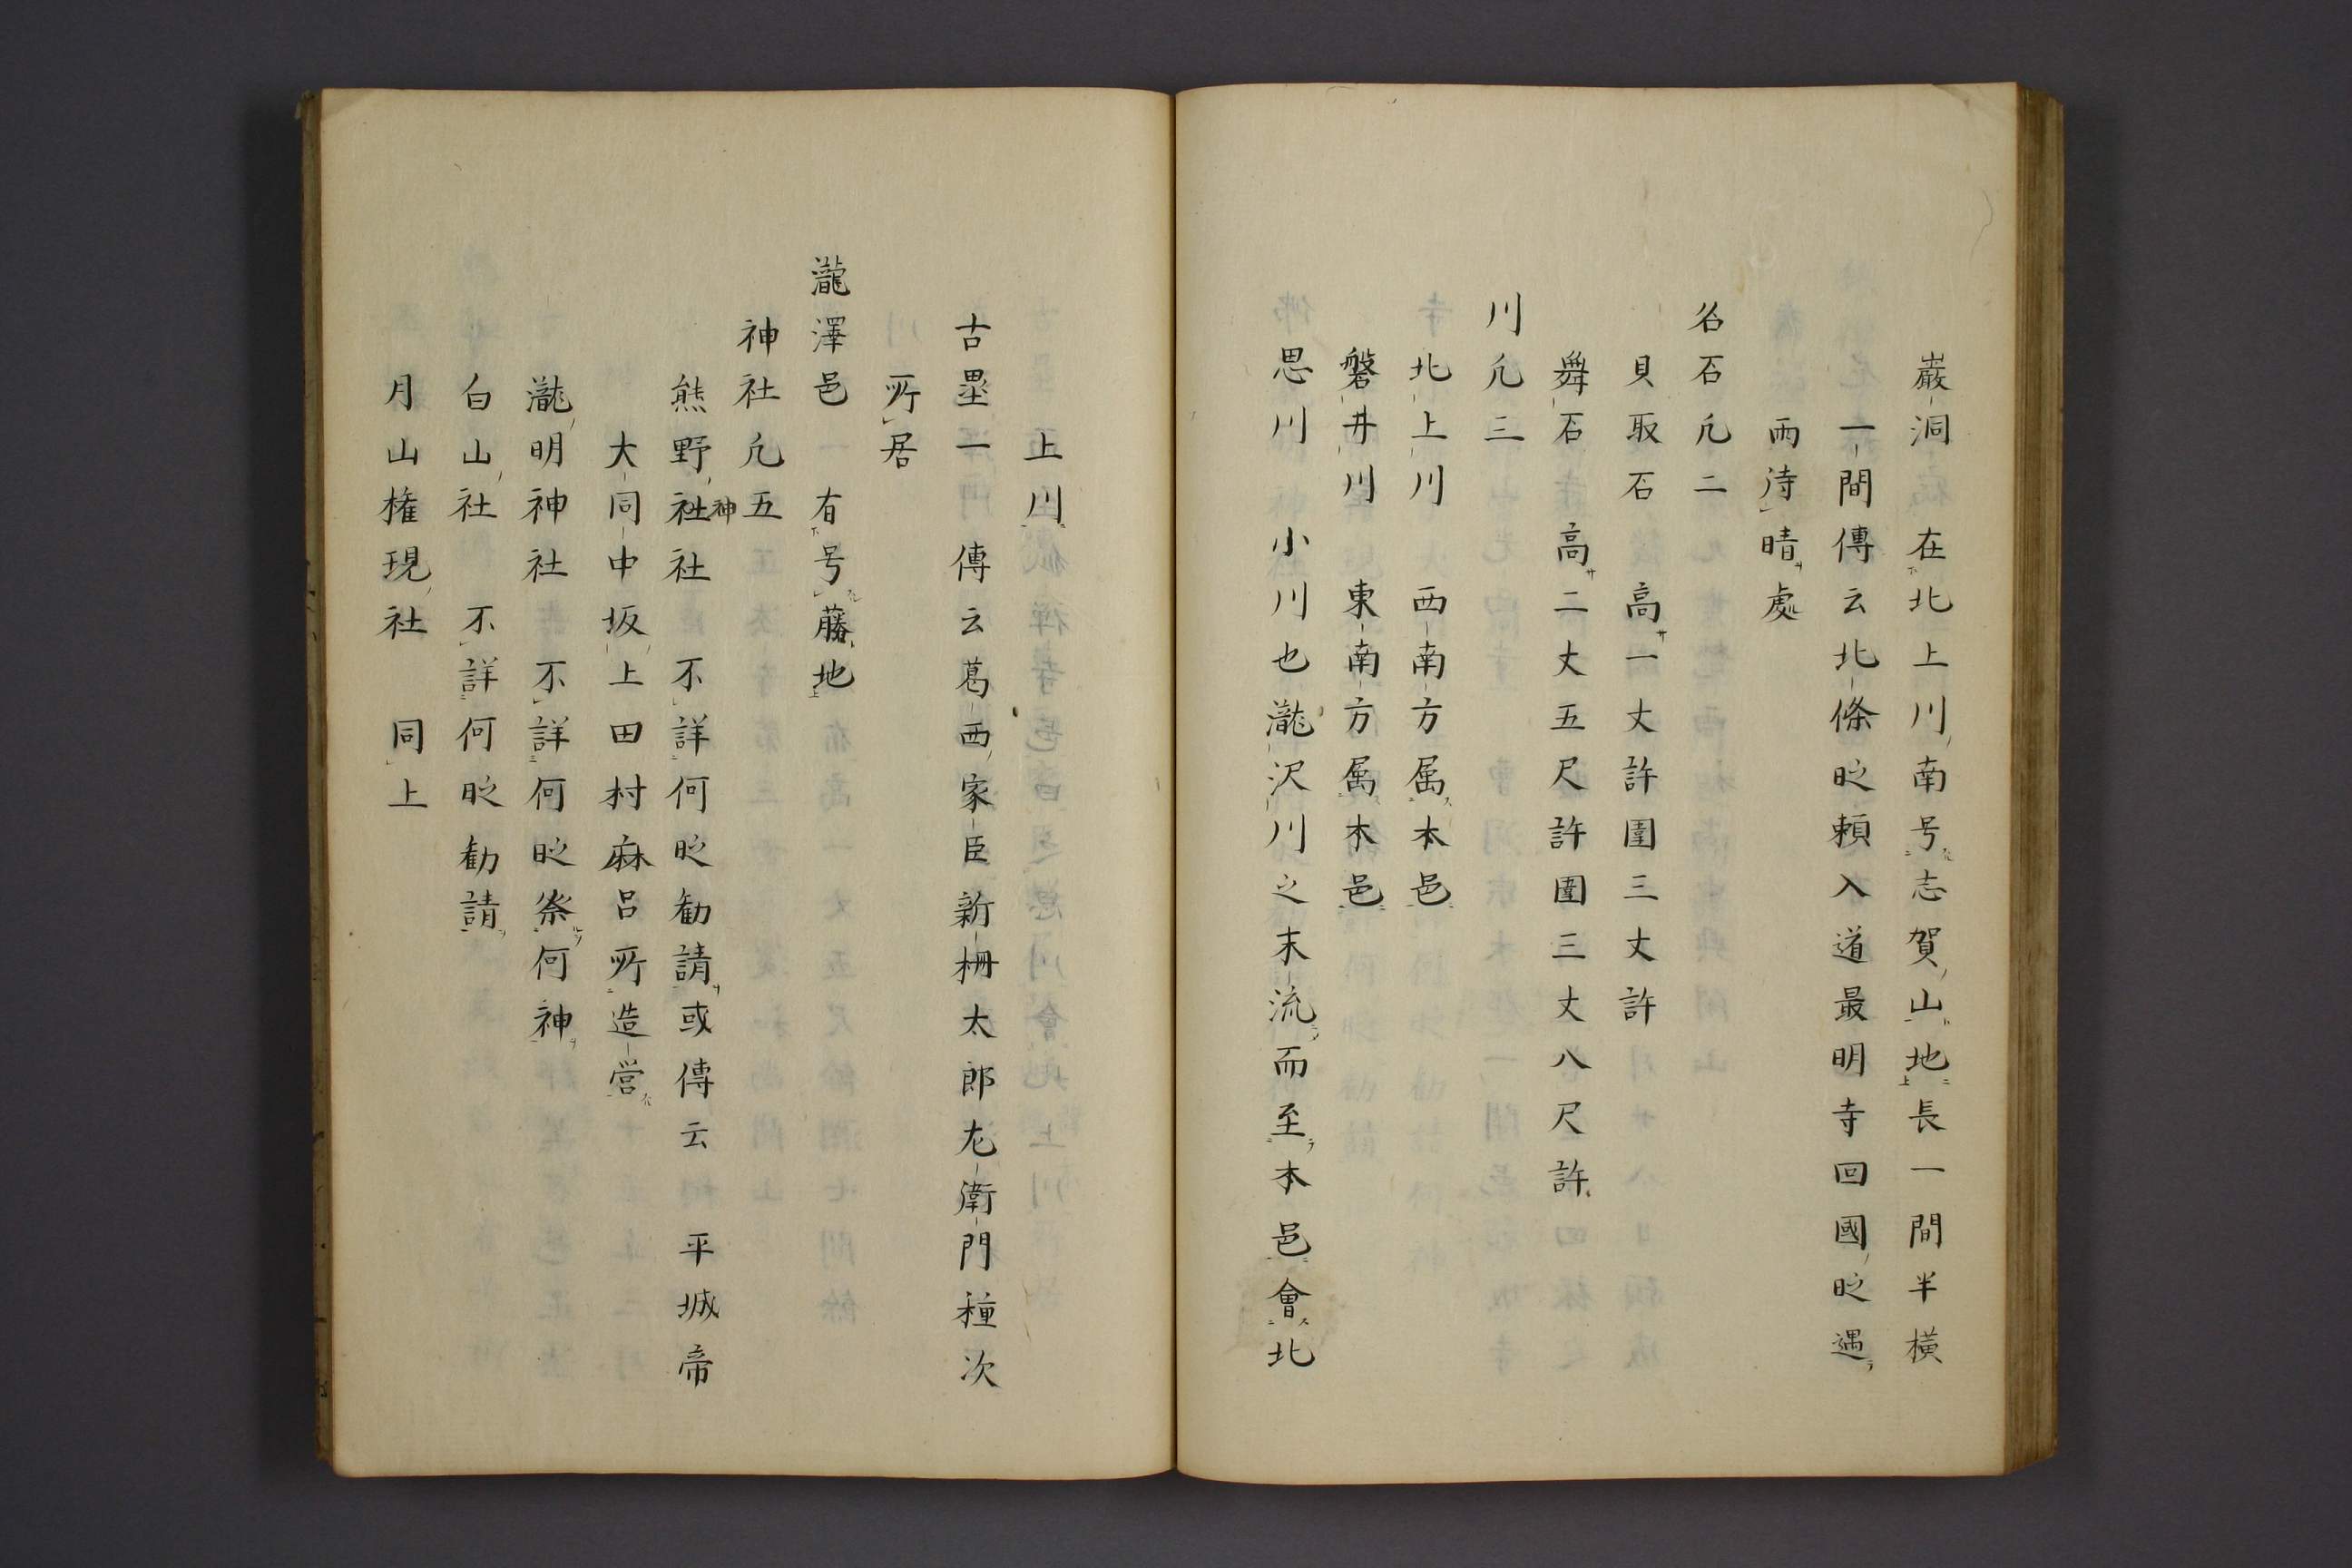 巌洞　在北上川南号志賀山地長一間半橫
一間傳云北條時頼入道最明寺回國時遇
雨待晴處
名石凢二
貝取石　高一丈許圍三丈許
舞石　高二丈五尺許圍三丈八尺許
川凢三
北上川　西南方属本邑
磐井川　東南方属本邑
思川　小川也瀧沢川之末流而至本邑會北
上川
古壘一　傳云葛西家臣新柵太郎左衛門種次
所居
瀧澤邑　有号藤地
神社凢五
熊野神社　不詳何時勧請或傳云　平城帝
大同中坂上田村麻呂所造営
瀧明神社　不詳何時祭何神
白山社　不詳何時勧請
月山権現社　同上